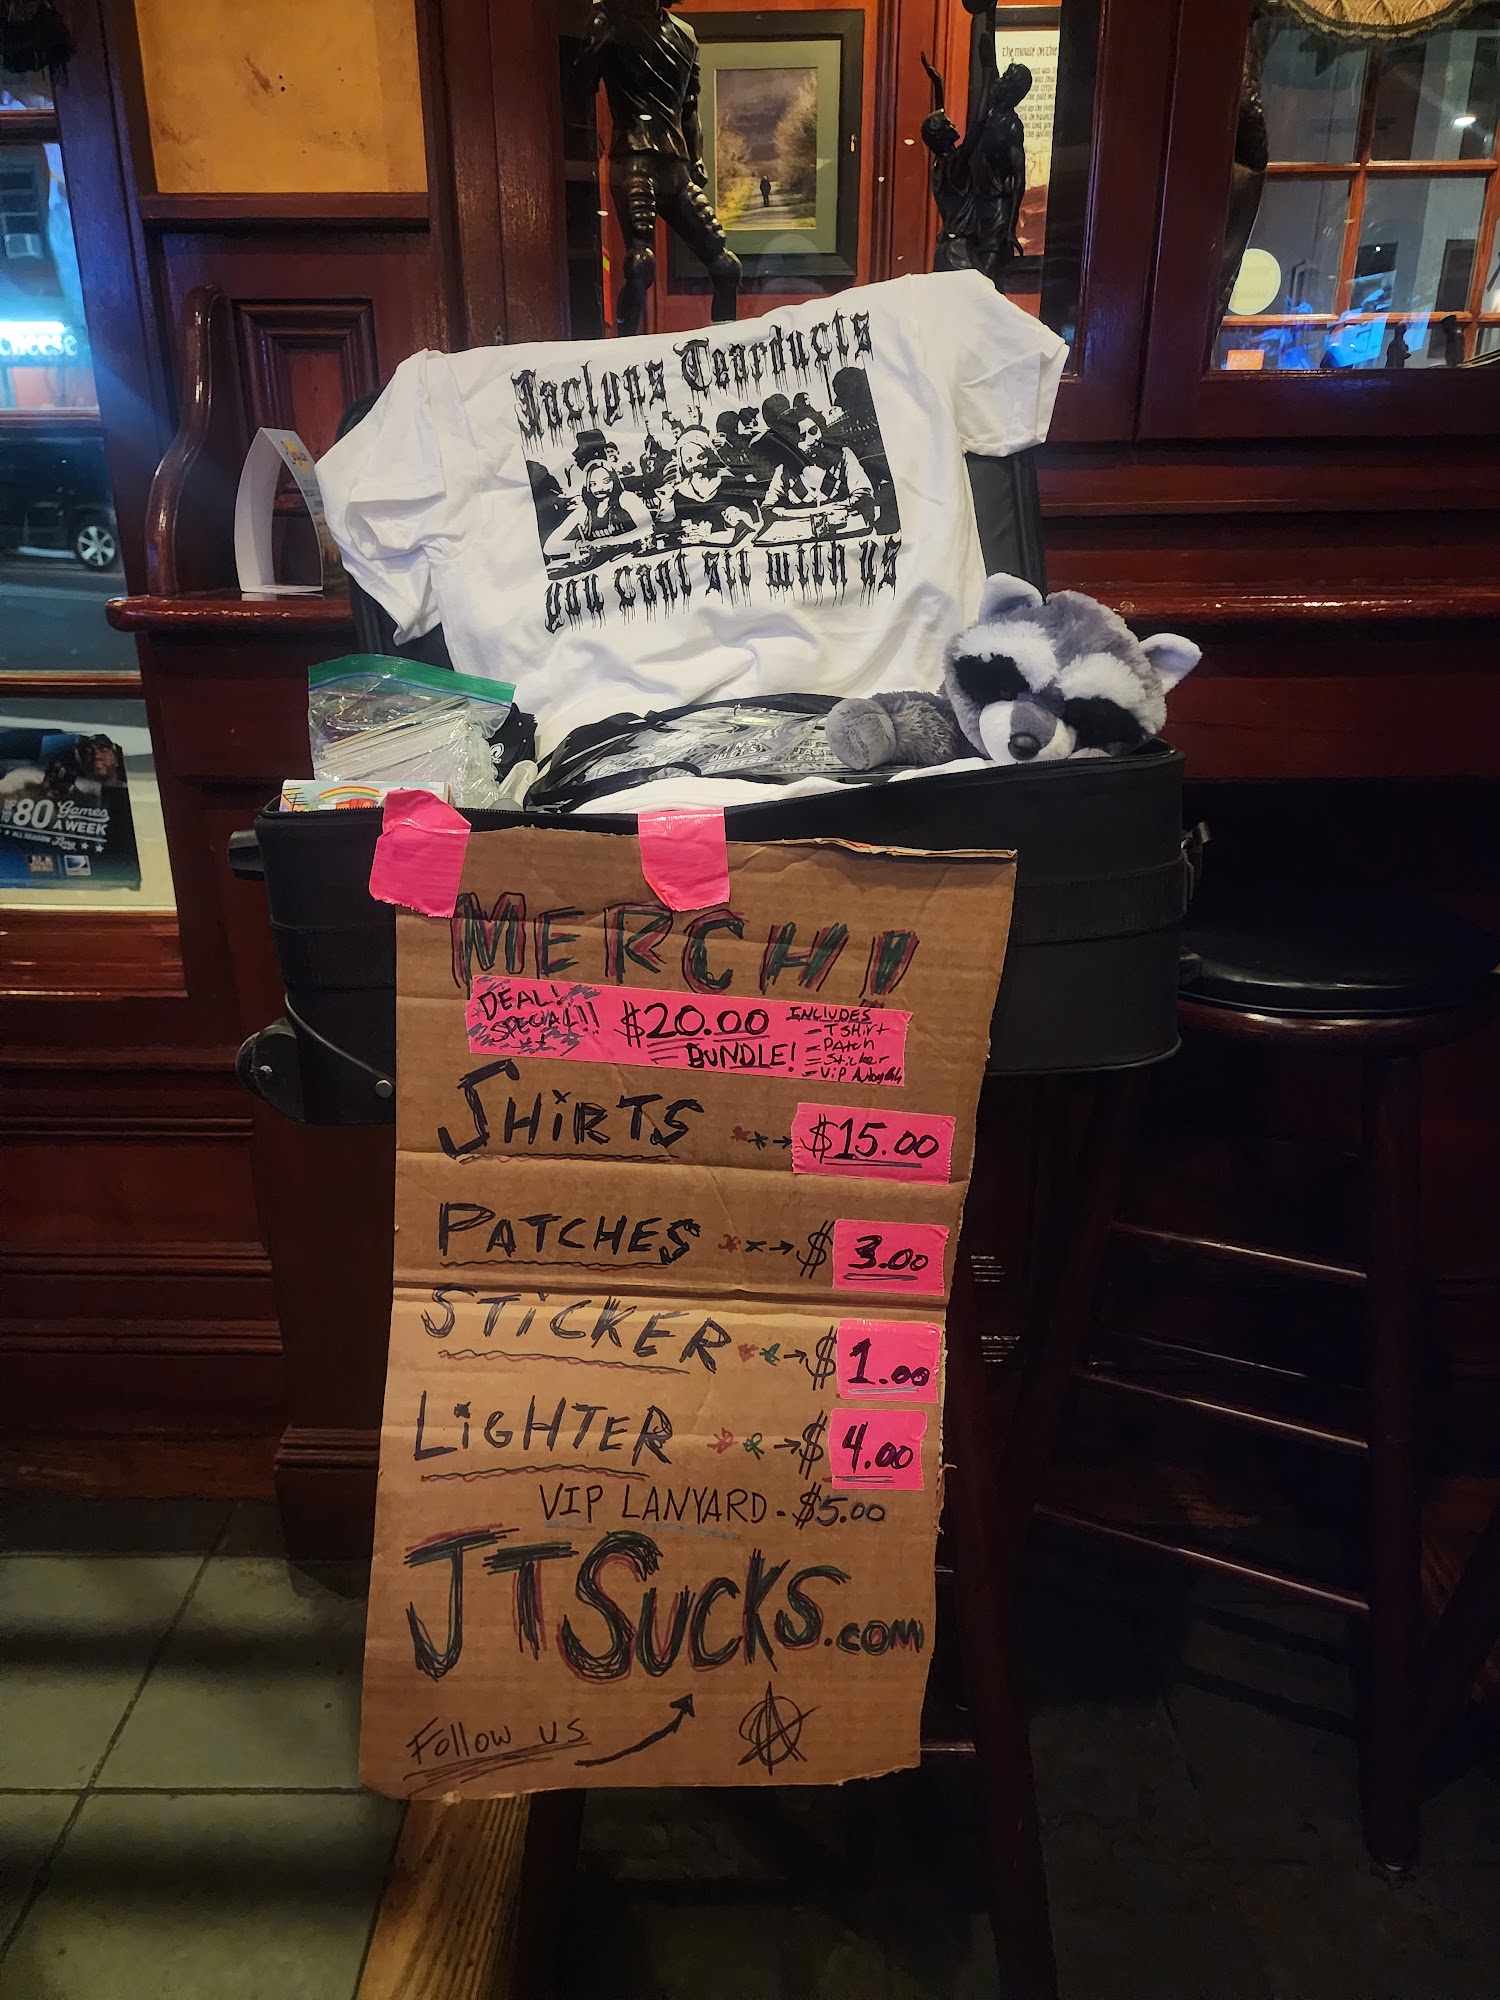 the mouse on the
cheese
Jaclyns Tearducts
you cant sit with us
80 Games
A WEEK
MERCH!
DEAL!
SPECIAL!!
$20.00
BUNDLE!
INCLUDES
- TSHirt
- PAtch
- Sticker
- ViP
SHiRTS → $15.00
PATCHES → $ 3.00
STiCKER → $ 1.00
LiGHTER → $ 4.00
VIP LANYARD - $5.00
JTSucKS.com
Follow us